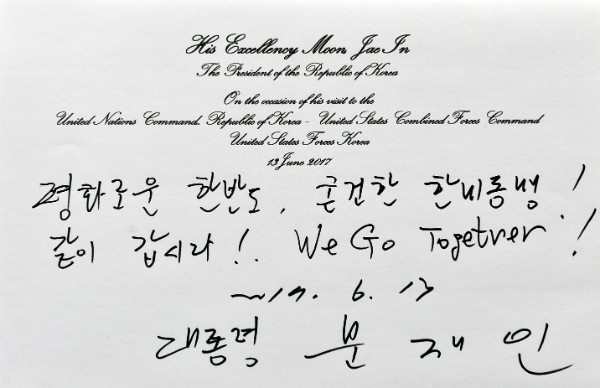 His Excellency Moon, Jae In
The President of the Republic of Korea
On the occasion of his visit to the
United Nations Command, Republic of Korea - United States Combined Forces Command
United States Forces Korea
13 June 2017
평화로운 한반도, 굳건한 한미동맹!
같이 갑시다! We Go Together!
2017. 6. 13
대통령 문재인